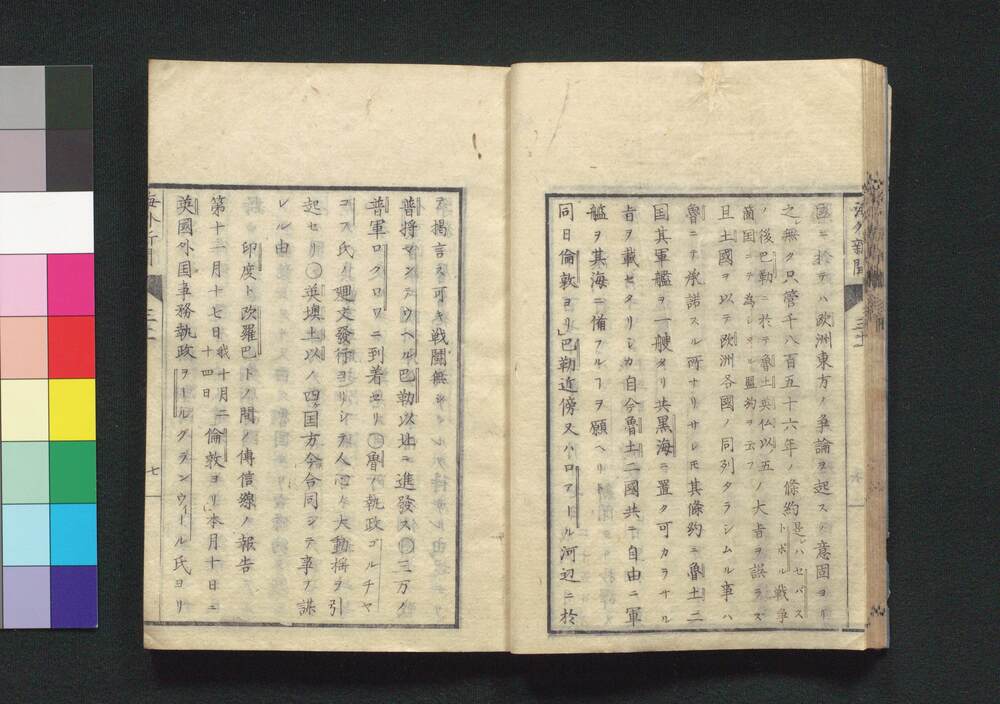 海外新聞
國ニ於テハ欧洲東方ノ爭論ヲ起スノ意固ヨリ
之無ク只管千八百五十六年ノ條約是ハセバストポル戦爭
ノ後巴勒ニ於テ魯土英仏以五箇国ニテ為シタル盟約ヲ云フノ大旨ヲ誤ラズ
且土國ヲ以テ欧洲各國ノ同列タラシムル事ハ
魯ニテ承諾スル所ナリサレ𪜈其條約ニ魯土二
国其軍艦ヲ一艘タリ共黒海ニ置ク可カラサル
旨ヲ載セタリシカ自今魯土二國共ニ自由ニ軍
艦ヲ其海ニ備フルヿヲ願ヘリ
同日倫敦ヨリ巴勒近傍又ハロアール河辺ニ於
テ揭言ス可キ戦闘無シ
普將マンテウヘル巴勒以北ニ進發ス〇三万ノ
普軍ロクロワニ到着セリ〇魯ノ執政ゴルチヤ
コフ氏ノ廻文發行ヨリシテ人心ヲ大動揺ヲ引
起セリ〇英墺土以ノ四国方今合同シテ事ヲ謀
レル由
印度ト欧羅巴トノ間ノ傳信線ノ報告
第十二月十七日我十月二十四日倫敦ヨリ本月十日ニ
英國外国事務執政ヲールグランウィール氏ヨリ
海外新聞
七